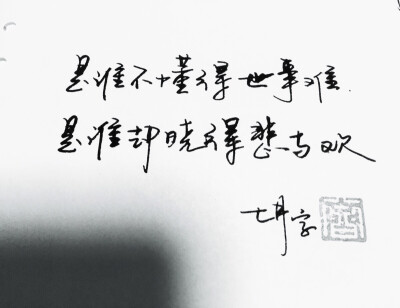 是谁不懂得世事难
是谁却晓得悲与欢
七月字